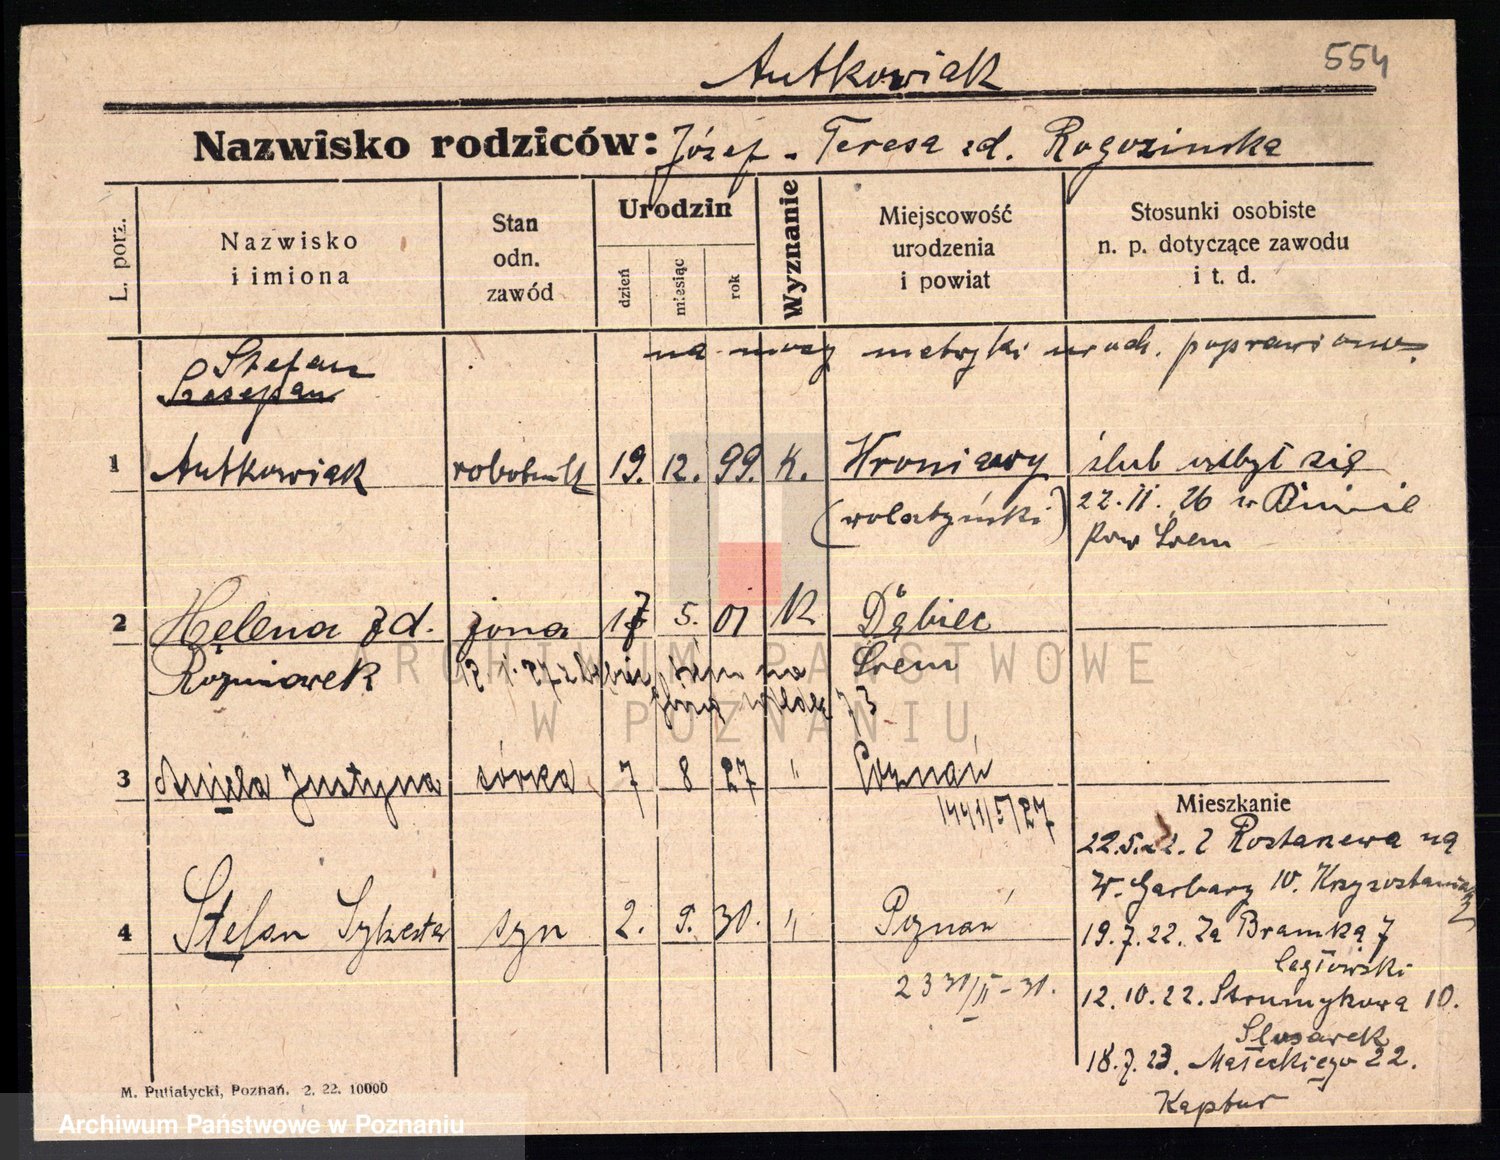 Antkowiak
554
Nazwisko rodziców: Józef - Teresa zd. Rogozinska
L. porz.
Nazwisko
i imiona
Stan
odn.
zawód
Urodzin
dzień
miesiąc
rok
Wyznanie
Miejscowość
urodzenia
i powiat
Stosunki osobiste
n. p. dotyczące zawodu
i t. d.
na mocy metryki urodz. poprawiono.
Stefan
Szczepan
1 Antkowiak robotnik 19. 12. 99. K. Wroniawy ślub odbył się
(wolsztyński) 22.11.26 w Bninie
pow Śrem
2 Helena zd. żona 17 5. 01 K Dąbiec
Rozmiarek Śrem
3 Aniela Justyna córka 7 8 27 " Poznań
1441/5/27
4 Stefan Sylwester syn 2. 9. 30. " Poznań
Mieszkanie
22.5.22. z Rostarzewa na
W. Garbary 10.
19.7.22. Za Bramką 7
Cegłowski
12.10.22. Strumykowa 10.
Slosarek
18.7.23. Małeckiego 22.
Kaptur
M. Putiatycki, Poznań. 2. 22. 10000
ARCHIWUM PAŃSTWOWE
W POZNANIU
Archiwum Państwowe w Poznaniu